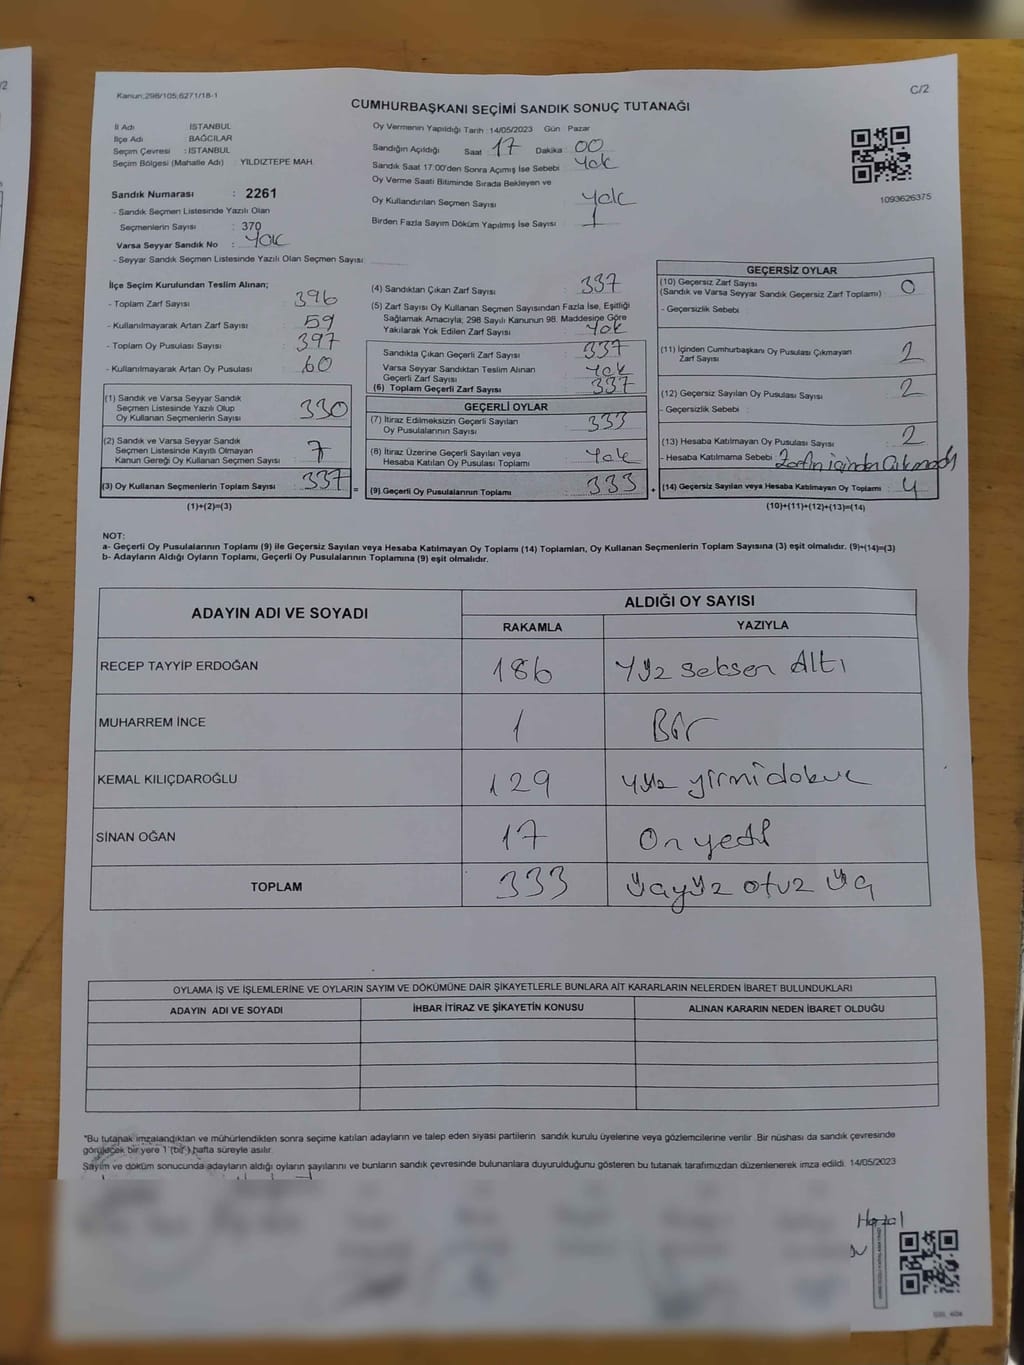 /2
Kanun;298/105;6271/18-1
C/2
CUMHURBAŞKANI SEÇİMİ SANDIK SONUÇ TUTANAĞI
İl Adı İSTANBUL
İlçe Adı BAĞCILAR
Seçim Çevresi : İSTANBUL
Seçim Bölgesi (Mahalle Adı) : YILDIZTEPE MAH.
Sandık Numarası : 2261
- Sandık Seçmen Listesinde Yazılı Olan
Seçmenlerin Sayısı : 370
Varsa Seyyar Sandık No : Yok
- Seyyar Sandık Seçmen Listesinde Yazılı Olan Seçmen Sayısı :
Oy Vermenin Yapıldığı Tarih : 14/05/2023 Gün Pazar
Sandığın Açıldığı Saat 17 Dakika 00
Sandık Saat 17:00'den Sonra Açımış İse Sebebi Yok
Oy Verme Saati Bitiminde Sırada Bekleyen ve
Oy Kullandırılan Seçmen Sayısı Yok
Birden Fazla Sayım Döküm Yapılmış İse Sayısı 1
1093626375
İlçe Seçim Kurulundan Teslim Alınan;
- Toplam Zarf Sayısı : 396
- Kullanılmayarak Artan Zarf Sayısı : 59
- Toplam Oy Pusulası Sayısı : 397
- Kullanılmayarak Artan Oy Pusulası : 60
(1) Sandık ve Varsa Seyyar Sandık
Seçmen Listesinde Yazılı Olup
Oy Kullanan Seçmenlerin Sayısı : 330
(2) Sandık ve Varsa Seyyar Sandık
Seçmen Listesinde Kayıtlı Olmayan
Kanun Gereği Oy Kullanan Seçmen Sayısı : 7
(3) Oy Kullanan Seçmenlerin Toplam Sayısı : 337
(1)+(2)=(3)
=
(4) Sandıktan Çıkan Zarf Sayısı : 337
(5) Zarf Sayısı Oy Kullanan Seçmen Sayısından Fazla İse, Eşitliği
Sağlamak Amacıyla; 298 Sayılı Kanunun 98. Maddesine Göre
Yakılarak Yok Edilen Zarf Sayısı : Yok
Sandıkta Çıkan Geçerli Zarf Sayısı : 337
Varsa Seyyar Sandıktan Teslim Alınan
Geçerli Zarf Sayısı : Yok
(6) Toplam Geçerli Zarf Sayısı : 337
GEÇERLİ OYLAR
(7) İtiraz Edilmeksizin Geçerli Sayılan
Oy Pusulalarının Sayısı : 333
(8) İtiraz Üzerine Geçerli Sayılan veya
Hesaba Katılan Oy Pusulası Toplamı : Yok
(9) Geçerli Oy Pusulalarının Toplamı : 333
+
GEÇERSİZ OYLAR
(10) Geçersiz Zarf Sayısı
(Sandık ve Varsa Seyyar Sandık Geçersiz Zarf Toplamı) : 0
- Geçersizlik Sebebi :
(11) İçinden Cumhurbaşkanı Oy Pusulası Çıkmayan
Zarf Sayısı : 2
(12) Geçersiz Sayılan Oy Pusulası Sayısı : 2
- Geçersizlik Sebebi :
(13) Hesaba Katılmayan Oy Pusulası Sayısı : 2
- Hesaba Katılmama Sebebi : Zarfın içinden Çıkmadı
(14) Geçersiz Sayılan veya Hesaba Katılmayan Oy Toplamı : 4
(10)+(11)+(12)+(13)=(14)
NOT:
a- Geçerli Oy Pusulalarının Toplamı (9) ile Geçersiz Sayılan veya Hesaba Katılmayan Oy Toplamı (14) Toplamları, Oy Kullanan Seçmenlerin Toplam Sayısına (3) eşit olmalıdır. (9)+(14)=(3)
b- Adayların Aldığı Oyların Toplamı, Geçerli Oy Pusulalarının Toplamına (9) eşit olmalıdır.
ADAYIN ADI VE SOYADI
ALDIĞI OY SAYISI
RAKAMLA YAZIYLA
RECEP TAYYİP ERDOĞAN 186 Yüz seksen Altı
MUHARREM İNCE 1 Bir
KEMAL KILIÇDAROĞLU 129 yüz yirmidokuz
SİNAN OĞAN 17 On yedi
TOPLAM 333 üçyüz otuz üç
OYLAMA İŞ VE İŞLEMLERİNE VE OYLARIN SAYIM VE DÖKÜMÜNE DAİR ŞİKAYETLERLE BUNLARA AİT KARARLARIN NELERDEN İBARET BULUNDUKLARI
ADAYIN ADI VE SOYADI İHBAR İTİRAZ VE ŞİKAYETİN KONUSU ALINAN KARARIN NEDEN İBARET OLDUĞU
*Bu tutanak imzalandıktan ve mühürlendikten sonra seçime katılan adayların ve talep eden siyasi partilerin sandık kurulu üyelerine veya gözlemcilerine verilir. Bir nüshası da sandık çevresinde
görülecek bir yere 1 (bir) hafta süreyle asılır.
Sayım ve döküm sonucunda adayların aldığı oyların sayılarını ve bunların sandık çevresinde bulunanlara duyurulduğunu gösteren bu tutanak tarafımızdan düzenlenerek imza edildi. 14/05/2023